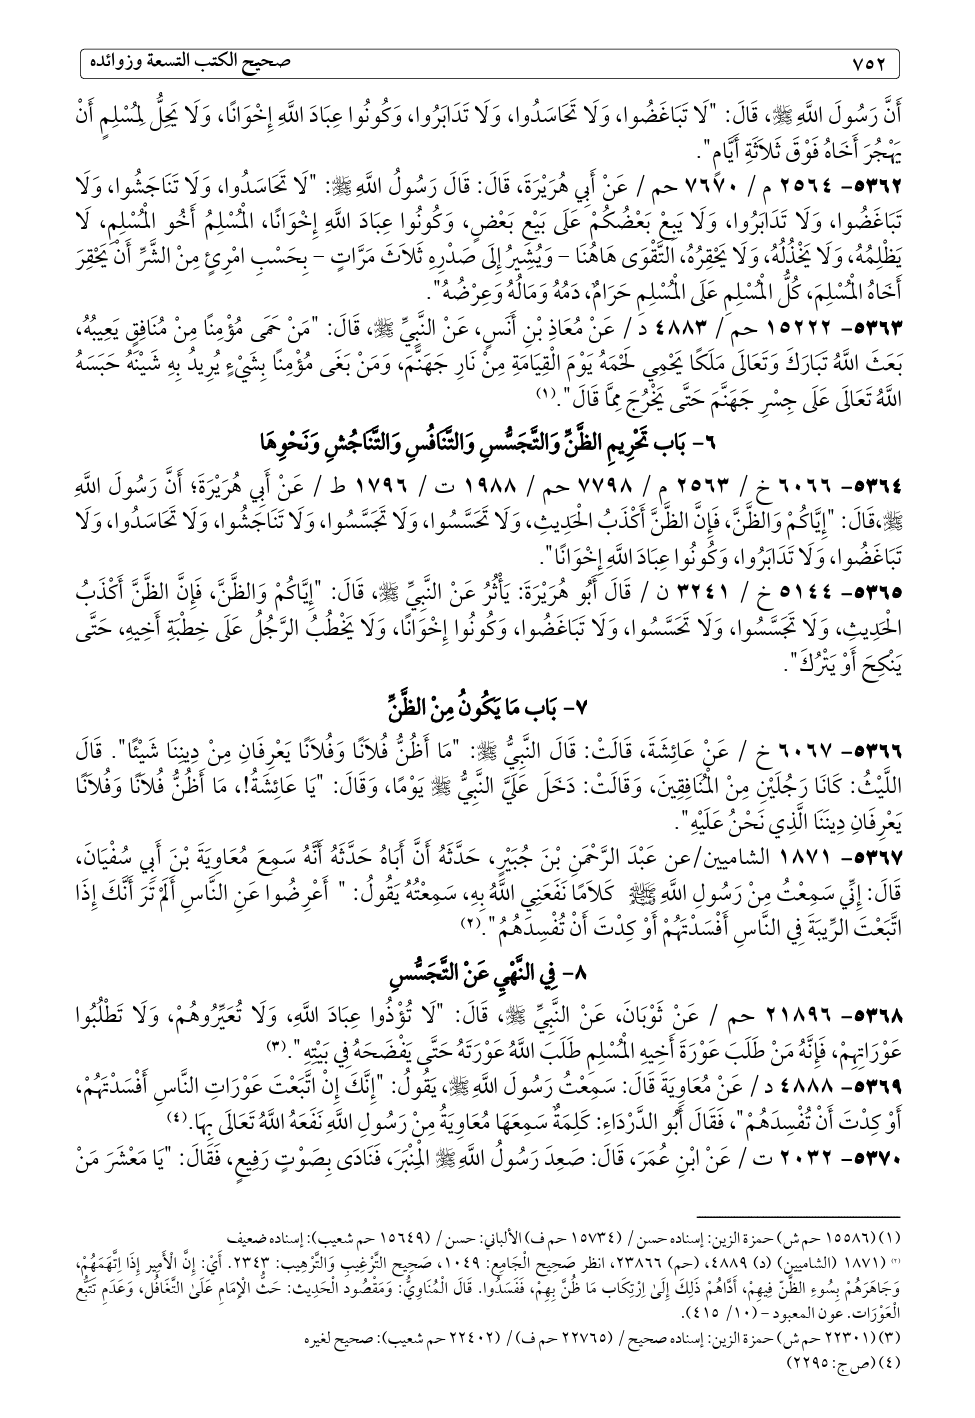 ٧٥٢ صحيح الكتب التسعة وزوائده
أَنَّ رَسُولَ اللَّهِ ﷺ، قَالَ: "لَا تَبَاغَضُوا، وَلَا تَحَاسَدُوا، وَلَا تَدَابَرُوا، وَكُونُوا عِبَادَ اللَّهِ إِخْوَانًا، وَلَا يَحِلُّ لِمُسْلِمٍ أَنْ
يَهْجُرَ أَخَاهُ فَوْقَ ثَلَاثَةِ أَيَّامٍ".
٥٣٦٢- ٢٥٦٤ م / ٧٦٧٠ حم / عَنْ أَبِي هُرَيْرَةَ، قَالَ: قَالَ رَسُولُ اللَّهِ ﷺ: "لَا تَحَاسَدُوا، وَلَا تَنَاجَشُوا، وَلَا
تَبَاغَضُوا، وَلَا تَدَابَرُوا، وَلَا يَبِعْ بَعْضُكُمْ عَلَى بَيْعِ بَعْضٍ، وَكُونُوا عِبَادَ اللَّهِ إِخْوَانًا، الْمُسْلِمُ أَخُو الْمُسْلِمِ، لَا
يَظْلِمُهُ، وَلَا يَخْذُلُهُ، وَلَا يَحْقِرُهُ، التَّقْوَى هَاهُنَا – وَيُشِيرُ إِلَى صَدْرِهِ ثَلَاثَ مَرَّاتٍ – بِحَسْبِ امْرِئٍ مِنْ الشَّرِّ أَنْ يَحْقِرَ
أَخَاهُ الْمُسْلِمَ، كُلُّ الْمُسْلِمِ عَلَى الْمُسْلِمِ حَرَامٌ، دَمُهُ وَمَالُهُ وَعِرْضُهُ".
٥٣٦٣- ١٥٢٢٢ حم / ٤٨٨٣ د/ عَنْ مُعَاذِ بْنِ أَنَسٍ، عَنْ النَّبِيِّ ﷺ، قَالَ: "مَنْ حَمَى مُؤْمِنًا مِنْ مُنَافِقٍ يَعِيبُهُ،
بَعَثَ اللَّهُ تَبَارَكَ وَتَعَالَى مَلَكًا يَحْمِي لَحْمَهُ يَوْمَ الْقِيَامَةِ مِنْ نَارِ جَهَنَّمَ، وَمَنْ بَغَى مُؤْمِنًا بِشَيْءٍ يُرِيدُ بِهِ شَيْنَهُ حَبَسَهُ
اللَّهُ تَعَالَى عَلَى جِسْرِ جَهَنَّمَ حَتَّى يَخْرُجَ مِمَّا قَالَ".(١)
٦- بَاب تَحْرِيمِ الظَّنِّ وَالتَّجَسُّسِ وَالتَّنَافُسِ وَالتَّنَاجُشِ وَنَحْوِهَا
٥٣٦٤- ٦٠٦٦ خ / ٢٥٦٣ م / ٧٧٩٨ حم / ١٩٨٨ ت / ١٧٩٦ ط / عَنْ أَبِي هُرَيْرَةَ؛ أَنَّ رَسُولَ اللَّهِ
ﷺ،قَالَ: "إِيَّاكُمْ وَالظَّنَّ، فَإِنَّ الظَّنَّ أَكْذَبُ الْحَدِيثِ، وَلَا تَحَسَّسُوا، وَلَا تَجَسَّسُوا، وَلَا تَنَاجَشُوا، وَلَا تَحَاسَدُوا، وَلَا
تَبَاغَضُوا، وَلَا تَدَابَرُوا، وَكُونُوا عِبَادَ اللَّهِ إِخْوَانًا".
٥٣٦٥- ٥١٤٤ خ / ٣٢٤١ ن / قَالَ أَبُو هُرَيْرَةَ: يَأْثُرُ عَنْ النَّبِيِّ ﷺ، قَالَ: "إِيَّاكُمْ وَالظَّنَّ، فَإِنَّ الظَّنَّ أَكْذَبُ
الْحَدِيثِ، وَلَا تَجَسَّسُوا، وَلَا تَحَسَّسُوا، وَلَا تَبَاغَضُوا، وَكُونُوا إِخْوَانًا، وَلَا يَخْطُبُ الرَّجُلُ عَلَى خِطْبَةِ أَخِيهِ، حَتَّى
يَنْكِحَ أَوْ يَتْرُكَ".
٧- بَاب مَا يَكُونُ مِنْ الظَّنِّ
٥٣٦٦- ٦٠٦٧ خ / عَنْ عَائِشَةَ، قَالَتْ: قَالَ النَّبِيُّ ﷺ: "مَا أَظُنُّ فُلَانًا وَفُلَانًا يَعْرِفَانِ مِنْ دِينِنَا شَيْئًا". قَالَ
اللَّيْثُ: كَانَا رَجُلَيْنِ مِنْ الْمُنَافِقِينَ، وَقَالَتْ: دَخَلَ عَلَيَّ النَّبِيُّ ﷺ يَوْمًا، وَقَالَ: "يَا عَائِشَةُ!، مَا أَظُنُّ فُلَانًا وَفُلَانًا
يَعْرِفَانِ دِينَنَا الَّذِي نَحْنُ عَلَيْهِ".
٥٣٦٧- ١٨٧١ الشاميين/عن عَبْدَ الرَّحْمَنِ بْنَ جُبَيْرٍ، حَدَّثَهُ أَنَّ أَبَاهُ حَدَّثَهُ أَنَّهُ سَمِعَ مُعَاوِيَةَ بْنَ أَبِي سُفْيَانَ،
قَالَ: إِنِّي سَمِعْتُ مِنْ رَسُولِ اللَّهِ ﷺ كَلَامًا نَفَعَنِي اللَّهُ بِهِ، سَمِعْتُهُ يَقُولُ: " أَعْرِضُوا عَنِ النَّاسِ أَلَمْ تَرَ أَنَّكَ إِذَا
اتَّبَعْتَ الرِّيبَةَ فِي النَّاسِ أَفْسَدْتَهُمْ أَوْ كِدْتَ أَنْ تُفْسِدَهُمُ".(٢)
٨- فِي النَّهْيِ عَنْ التَّجَسُّسِ
٥٣٦٨- ٢١٨٩٦ حم / عَنْ ثَوْبَانَ، عَنْ النَّبِيِّ ﷺ، قَالَ: "لَا تُؤْذُوا عِبَادَ اللَّهِ، وَلَا تُعَيِّرُوهُمْ، وَلَا تَطْلُبُوا
عَوْرَاتِهِمْ، فَإِنَّهُ مَنْ طَلَبَ عَوْرَةَ أَخِيهِ الْمُسْلِمِ طَلَبَ اللَّهُ عَوْرَتَهُ حَتَّى يَفْضَحَهُ فِي بَيْتِهِ".(٣)
٥٣٦٩- ٤٨٨٨ د/ عَنْ مُعَاوِيَةَ قَالَ: سَمِعْتُ رَسُولَ اللَّهِ ﷺ، يَقُولُ: "إِنَّكَ إِنْ اتَّبَعْتَ عَوْرَاتِ النَّاسِ أَفْسَدْتَهُمْ،
أَوْ كِدْتَ أَنْ تُفْسِدَهُمْ"، فَقَالَ أَبُو الدَّرْدَاءِ: كَلِمَةٌ سَمِعَهَا مُعَاوِيَةُ مِنْ رَسُولِ اللَّهِ نَفَعَهُ اللَّهُ تَعَالَى بِهَا.(٤)
٥٣٧٠- ٢٠٣٢ ت / عَنْ ابْنِ عُمَرَ، قَالَ: صَعِدَ رَسُولُ اللَّهِ ﷺ الْمِنْبَرَ، فَنَادَى بِصَوْتٍ رَفِيعٍ، فَقَالَ: "يَا مَعْشَرَ مَنْ
(١) (١٥٥٨٦ حم ش) حمزة الزين: إسناده حسن / (١٥٧٣٤ حم ف) الألباني: حسن / (١٥٦٤٩ حم شعيب): إسناده ضعيف
(٢) ١٨٧١ (الشاميين) (د) ٤٨٨٩، (حم) ٢٣٨٦٦، انظر صَحِيح الْجَامِع: ١٠٤٩، صَحِيح التَّرْغِيبِ وَالتَّرْهِيب: ٢٣٤٣. أَيْ: إِنَّ الْأَمِير إِذَا اِتَّهَمَهُمْ،
وَجَاهَرَهُمْ بِسُوءِ الظَّنّ فِيهِمْ، أَدَّاهُمْ ذَلِكَ إِلَىٰ اِرْتِكَاب مَا ظُنَّ بِهِمْ، فَفَسَدُوا. قَالَ الْمُنَاوِيُّ: وَمَقْصُود الْحَدِيث: حَثُّ الْإِمَام عَلَىٰ التَّغَافُل، وَعَدَم تَتَبُّع
الْعَوْرَات. عون المعبود – (١٠/ ٤١٥).
(٣) (٢٢٣٠١ حم ش) حمزة الزين: إسناده صحيح / (٢٢٧٦٥ حم ف)/ (٢٢٤٠٢ حم شعيب): صحيح لغيره
(٤) (ص ج: ٢٢٩٥)